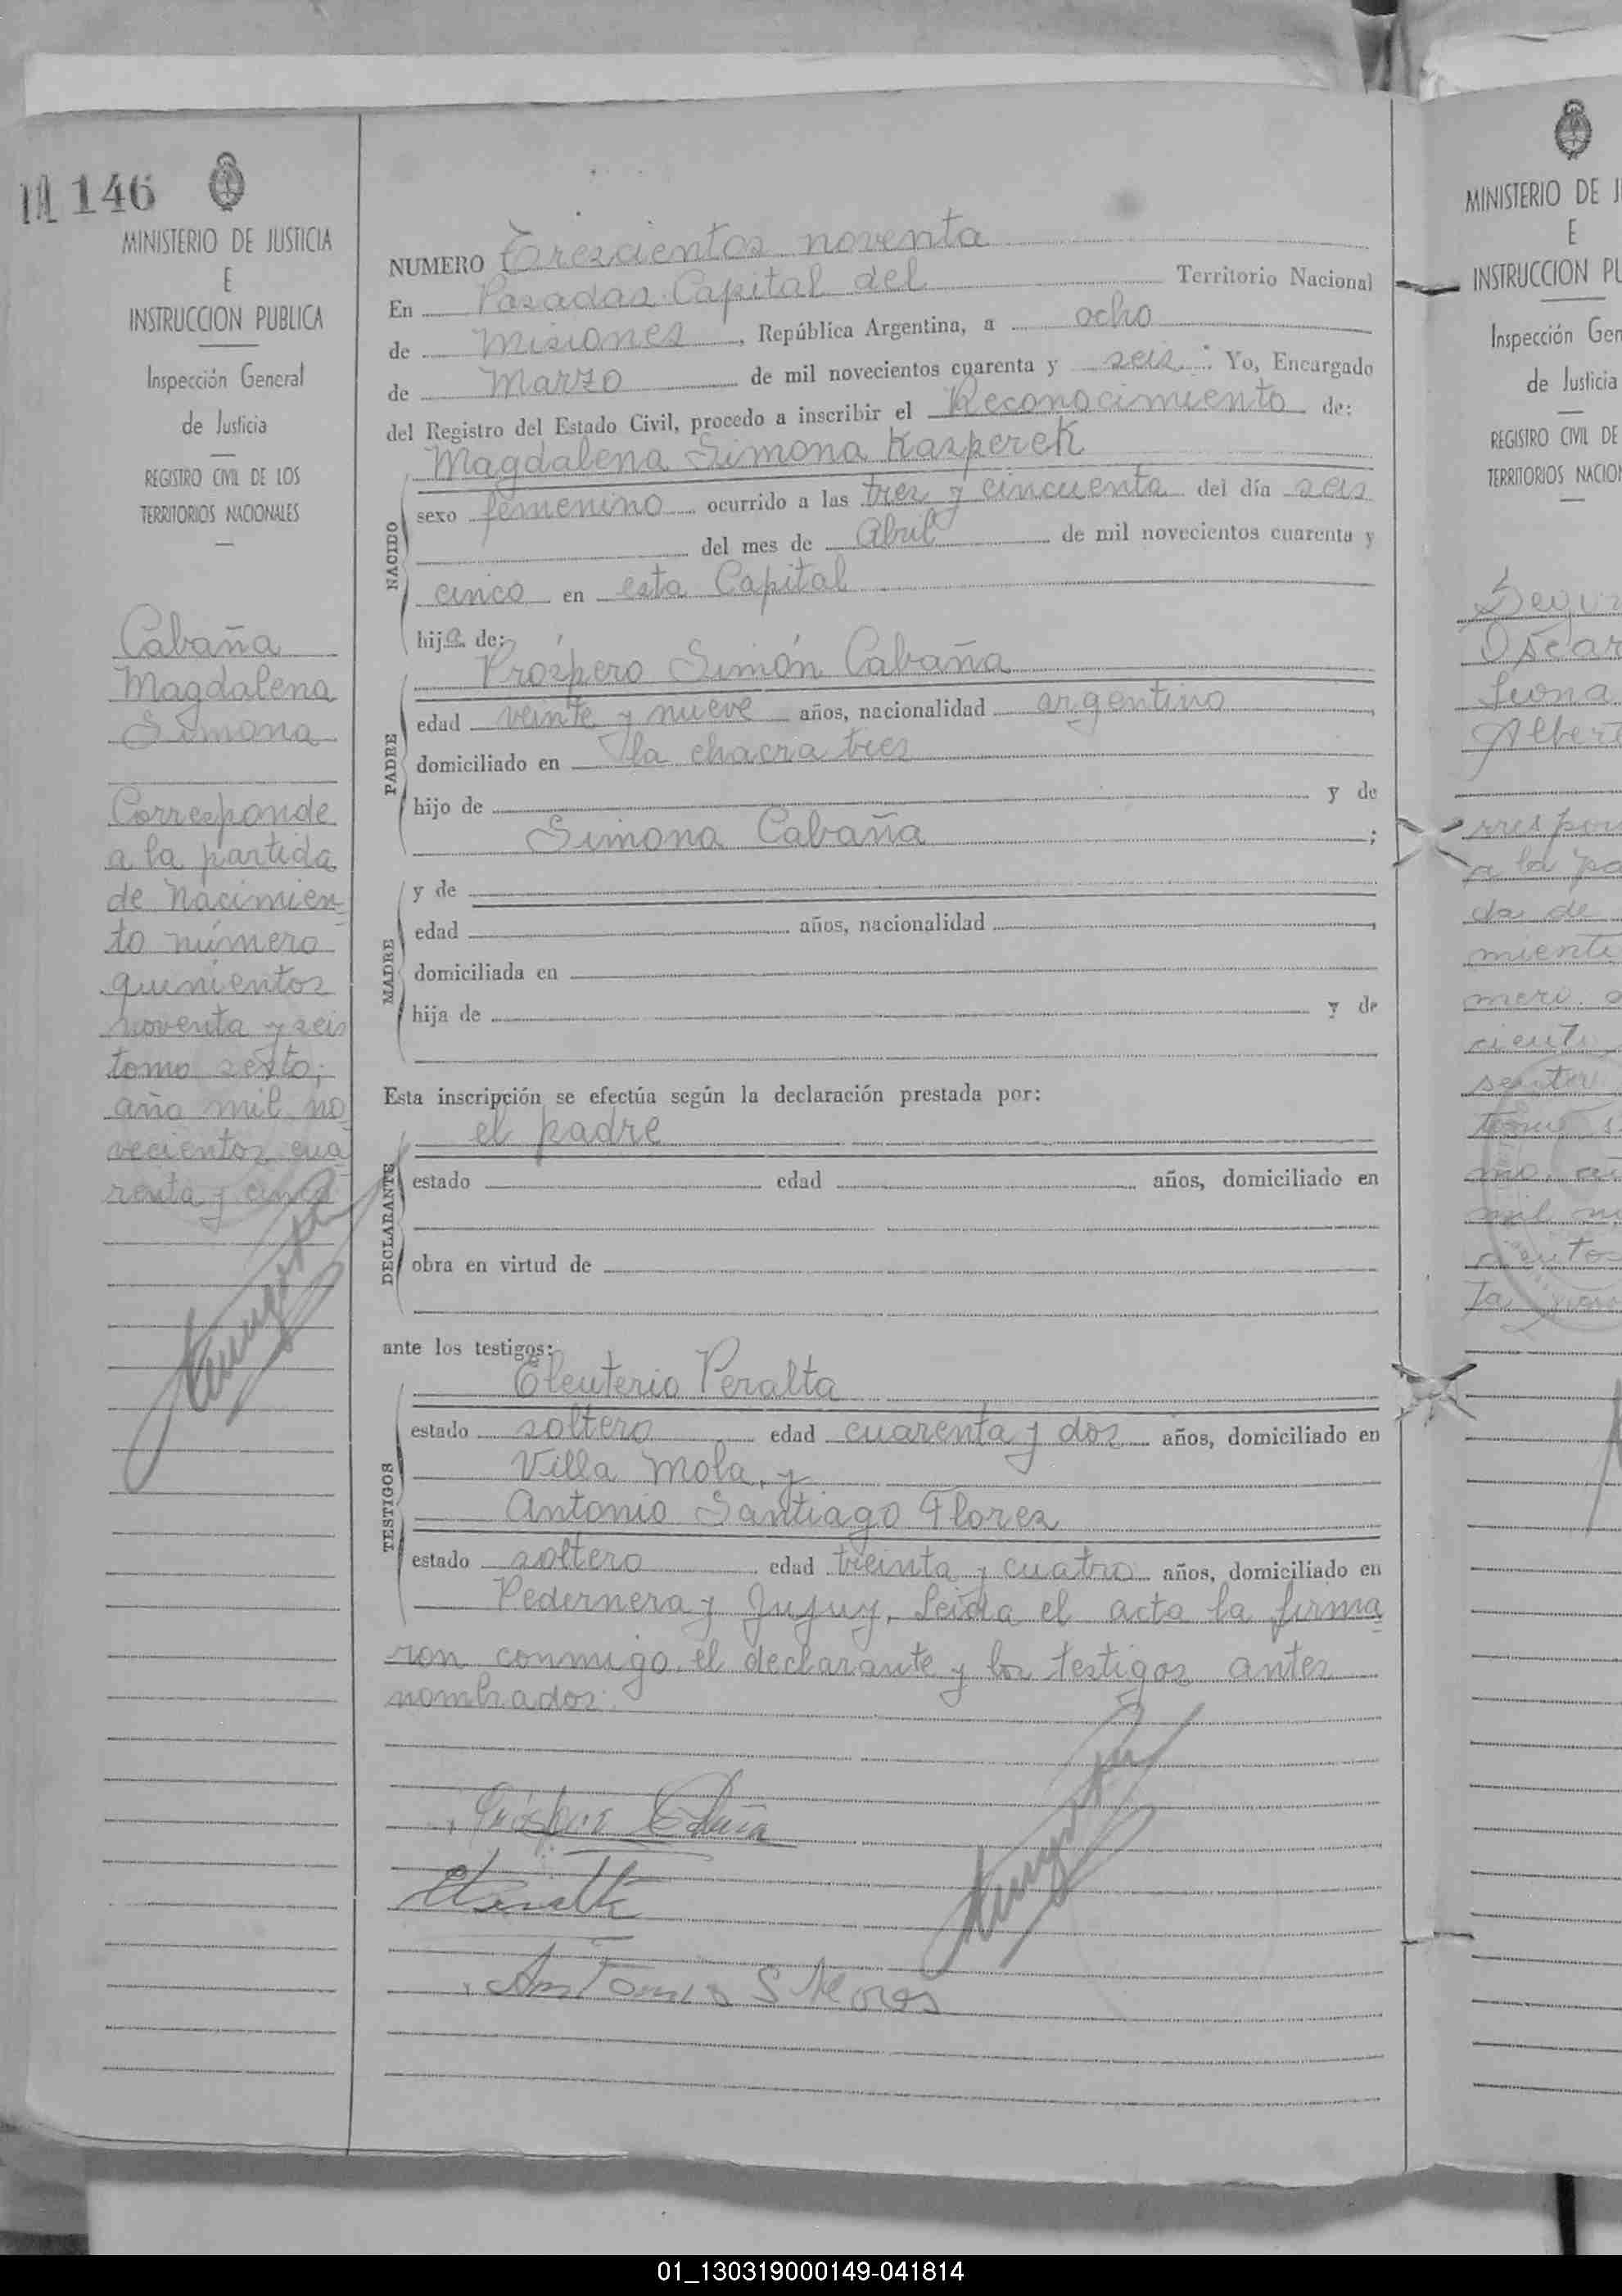 146
MINISTERIO DE JUSTICIA
E
INSTRUCCION PUBLICA
Inspección General
de Justicia
REGISTRO CIVIL DE LOS
TERRITORIOS NACIONALES
Cabaña
Magdalena
Simona
Corresponde
a la partida
de Nacimien-
to número
quinientos
noventa y seis
tomo sexto;
año mil no-
vecientos cua-
renta y cinco
NUMERO Trescientos noventa
En Posadas Capital del Territorio Nacional
de Misiones, República Argentina, a ocho
de Marzo de mil novecientos cuarenta y seis. Yo, Encargado
del Registro del Estado Civil, procedo a inscribir el Reconocimiento de:
NACIDO
Magdalena Simona Kasperek
sexo femenino ocurrido a las tres y cincuenta del día seis
del mes de Abril de mil novecientos cuarenta y
cinco en esta Capital
hija de:
PADRE
Próspero Simón Cabaña
edad veinte y nueve años, nacionalidad argentino
domiciliado en la chacra tres
hijo de y de
Simona Cabaña ;
MADRE
y de
edad años, nacionalidad
domiciliada en
hija de y de
Esta inscripción se efectúa según la declaración prestada por:
DECLARANTE
el padre
estado edad años, domiciliado en
obra en virtud de
ante los testigos:
TESTIGOS
Eleuterio Peralta
estado soltero edad cuarenta y dos años, domiciliado en
Villa Mola, y
Antonio Santiago Flores
estado soltero edad treinta y cuatro años, domiciliado en
Pedernera y Jujuy, Leída el acta la firma-
ron conmigo el declarante y los testigos antes
nombrados.
Próspero Cabaña
EPeralta
Antonio S Flores
MINISTERIO DE J
E
INSTRUCCION PU
Inspección Gen
de Justicia
REGISTRO CIVIL DE
TERRITORIOS NACION
Oscar
Alber
a la pa
da de
miento
mero
cient
01_130319000149-041814